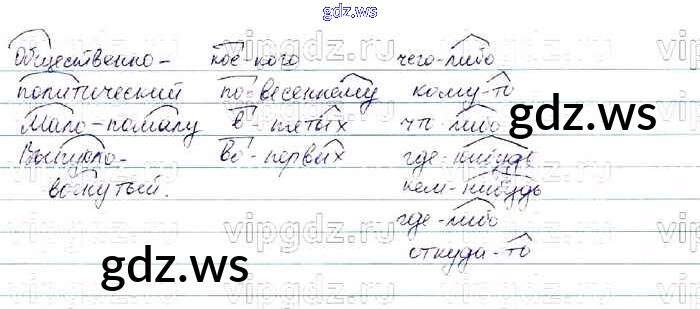 gdz.ws
Общественно- кое кого чего-либо
политический по-весеннему кому-то
Мало-помалу в-пятых чт-либо
Выпукло- Во-первых где-нибудь
вогнутый. кем-нибудь
где-либо
откуда-то
gdz.ws gdz.ws